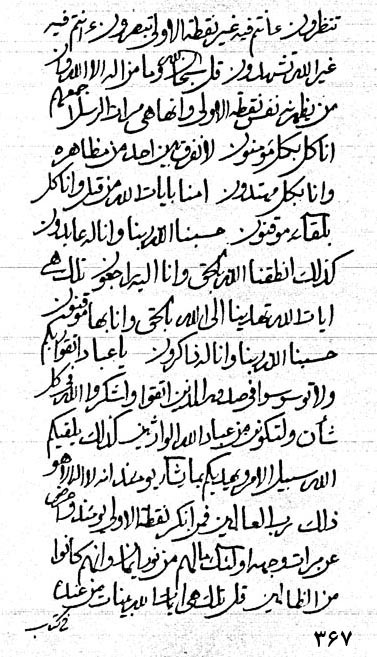 تنظرون ءانتم فيه غير نقطة الاولى تبصرون ءانتم فيه
غير الله تشهدون قل سبحان الله وما من اله الا الله وان
من يظهر نفس نقطة الاولى وانها هي مراءت الرسل اجمعهم
انا كل بكل مؤمنون لا نفرق بين احد من مظاهره
وانا بكل مهتدون امنا بايات الله من قبل وانا كل
بلقاءه موقنون حسبنا الله ربنا وانا له عابدون
كذلك انطقنا الله بالحق وانا اليه راجعون تلك هي
ايات الله تهدينا الى الله بالحق وانا بها موقنون
حسبنا الله ربنا وانا له ذاكرون يا عباد اتقوا ربكم
ولا توسوسوا في صدور الذين اتقوا واشكروا الله في كل
شأن ولتكونن من عباد الله الوارثين كذلك يلقيكم
الله سبيل الامر ويهديكم بما شاء يومئذ انه لا اله الا هو
ذلك رب العالمين فمن انكر نقطة الاولى يومئذ
عن مرات وجهه اولئك ما لهم من نور ايمان وانهم كانوا
من الظالمين قل تلك هي ايات الله بينات من عنده
في كتاب
٣٦٧